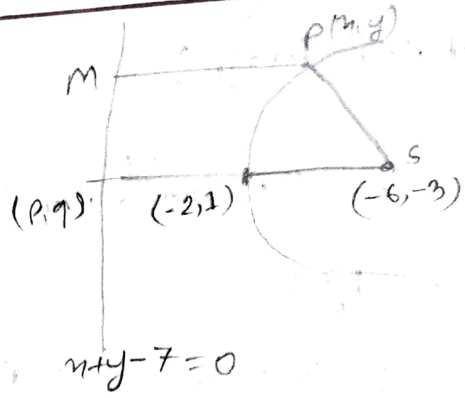 P(x,y)
M
S
(p,q)
(-2,1)
(-6,-3)
x+y-7=0